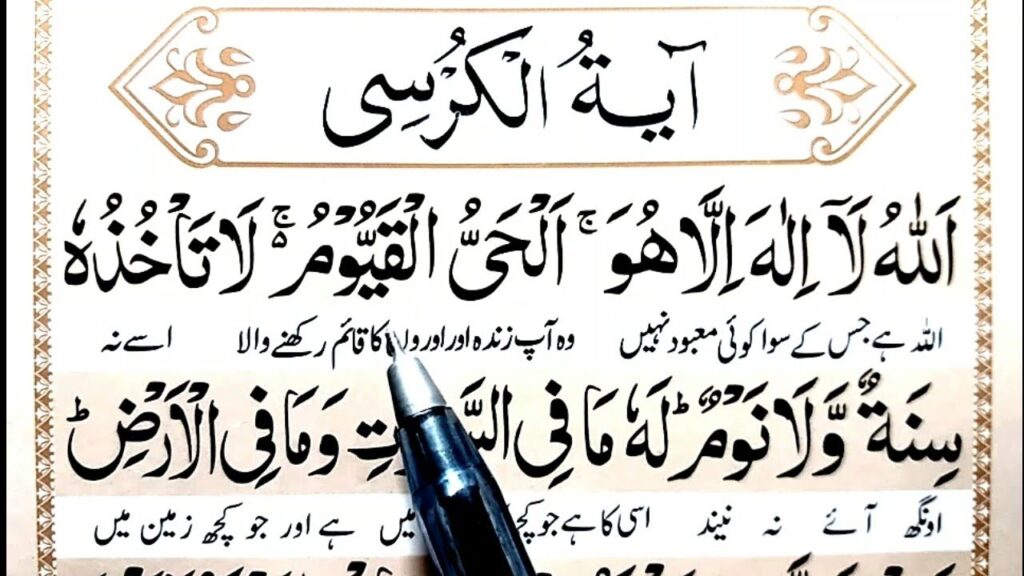 آيةُ الْكُرْسِی
اَللّٰهُ لَاۤ اِلٰهَ اِلَّا هُوَ ۚ اَلْحَیُّ الْقَیُّوْمُ ۚ۬ لَا تَاْخُذُهٗ
اللہ ہے جس کے سوا کوئی معبود نہیں وہ آپ زندہ اور اوروں کا قائم رکھنے والا اسے نہ
سِنَةٌ وَّلَا نَوْمٌ ؕ لَهٗ مَا فِی وَمَا فِی الْاَرْضِ ؕ
اونگھ آئے نہ نیند اسی کا ہے جو میں ہے اور جو کچھ زمین میں